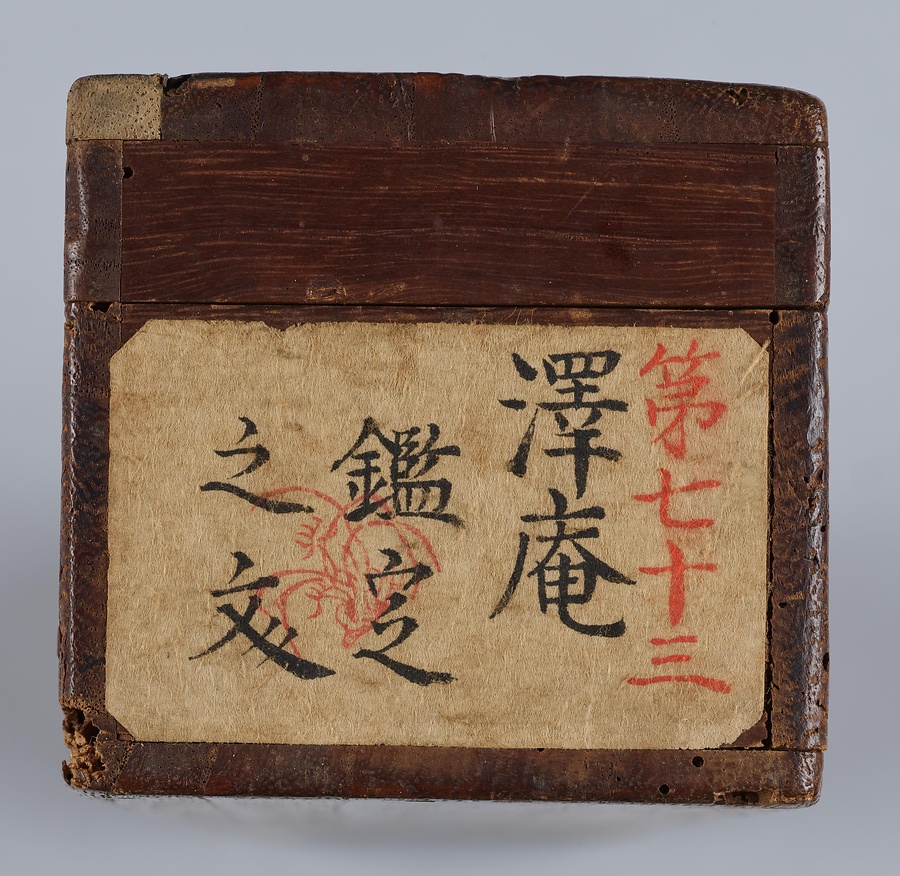 第七十三
澤庵
鑑定
之文